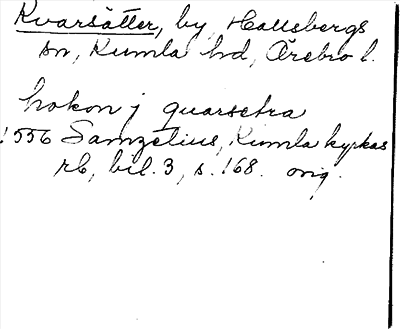 Kvarsätter, by, Hallsbergs
sn, Kumla hd, Örebro l.
hokon j quarsetra
1556 Samzelius, Kumla kyrkas
rb, bil. 3, s. 168. orig.